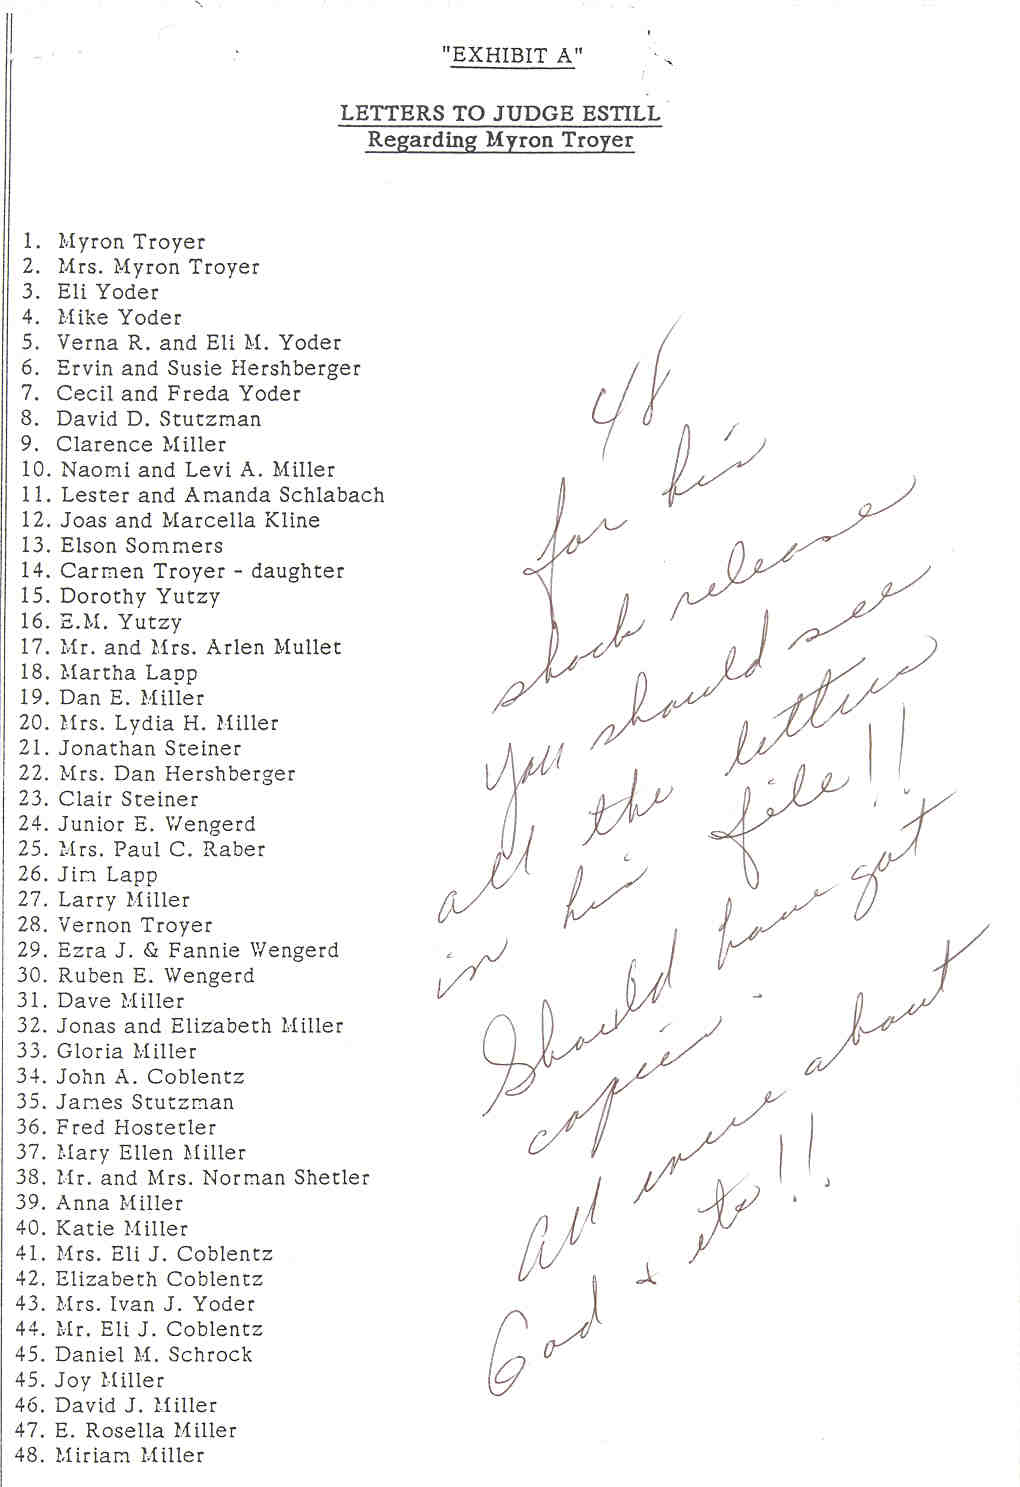 "EXHIBIT A"
LETTERS TO JUDGE ESTILL
Regarding Myron Troyer
1. Myron Troyer
2. Mrs. Myron Troyer
3. Eli Yoder
4. Mike Yoder
5. Verna R. and Eli M. Yoder
6. Ervin and Susie Hershberger
7. Cecil and Freda Yoder
8. David D. Stutzman
9. Clarence Miller
10. Naomi and Levi A. Miller
11. Lester and Amanda Schlabach
12. Joas and Marcella Kline
13. Elson Sommers
14. Carmen Troyer - daughter
15. Dorothy Yutzy
16. E.M. Yutzy
17. Mr. and Mrs. Arlen Mullet
18. Martha Lapp
19. Dan E. Miller
20. Mrs. Lydia H. Miller
21. Jonathan Steiner
22. Mrs. Dan Hershberger
23. Clair Steiner
24. Junior E. Wengerd
25. Mrs. Paul C. Raber
26. Jim Lapp
27. Larry Miller
28. Vernon Troyer
29. Ezra J. & Fannie Wengerd
30. Ruben E. Wengerd
31. Dave Miller
32. Jonas and Elizabeth Miller
33. Gloria Miller
34. John A. Coblentz
35. James Stutzman
36. Fred Hostetler
37. Mary Ellen Miller
38. Mr. and Mrs. Norman Shetler
39. Anna Miller
40. Katie Miller
41. Mrs. Eli J. Coblentz
42. Elizabeth Coblentz
43. Mrs. Ivan J. Yoder
44. Mr. Eli J. Coblentz
45. Daniel M. Schrock
45. Joy Miller
46. David J. Miller
47. E. Rosella Miller
48. Miriam Miller
48
for his
shock release
You should see
all the letters
in his file!!
Should have got
copies.
All were about
God & etc!!